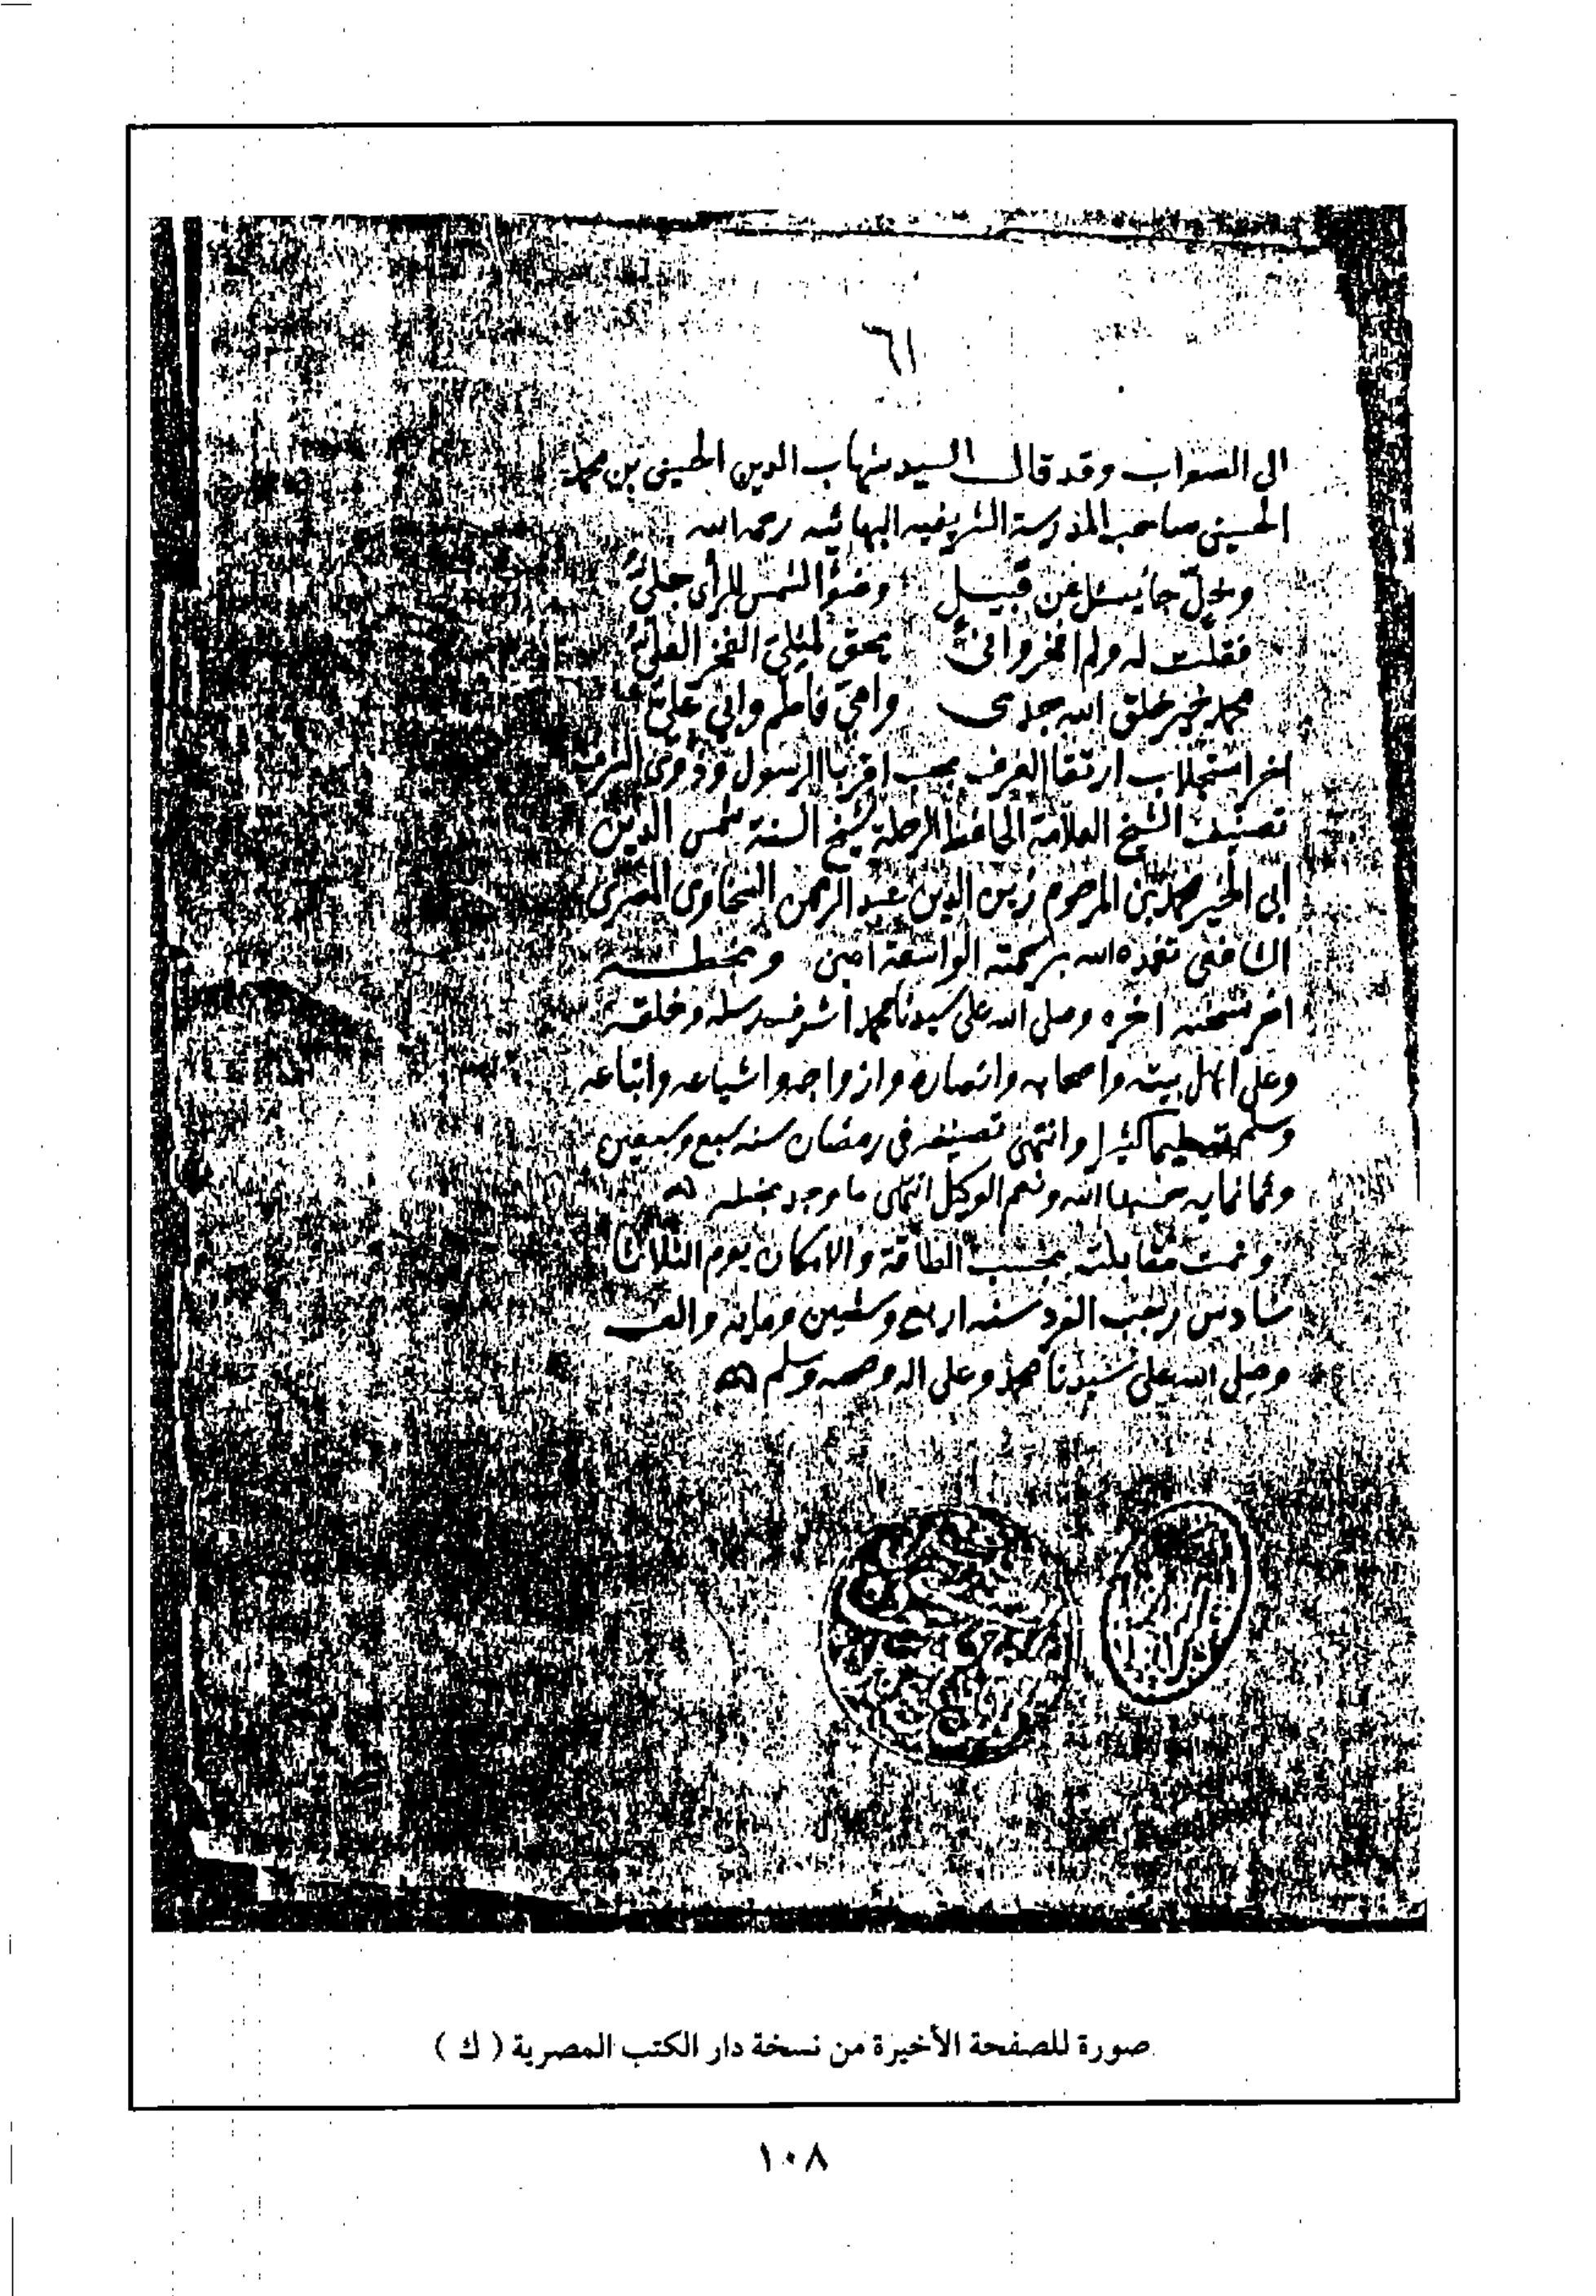 ٦١
الى الصواب وقد قال السيد شهاب الدين الحسيني بن محمد
الحسيني صاحب المدرسة الشريفيه البهائيه رحمه الله
وخل جا يسئل عن قبيل وضوا الشمس للرأى جلىّ
فقلت له ولم افخر وانى بحق لمثلى الفخر العلىّ
محمد خير خلق الله جدى وامى فاطم وابى علىّ
اخر استجلاب ارتقا الغرف بحب اقربا الرسول وذوى الشرف
تصنيف الشيخ العلامة الحافظ الرحلة شيخ السنة شمس الدين
ابى الخير محمد بن المرحوم زين الدين عبد الرحمن السخاوى المصرى
الشافعى تغمده الله برحمته الواسعة امين وبخطه
اخر نسخته اخره وصلى الله على سيدنا محمد اشرف رسله وخلقه
وعلى اهل بيته واصحابه وانصاره وازواجه واشياعه واتباعه
وسلم تعظيما كثيرا وانتهى تصنيفه فى رمضان سنه سبع وسبعين
وثمانمايه حسبنا الله ونعم الوكيل انتهى ما وجد بخطه
وتمت مقابلته بحسب الطاقة والامكان يوم الثلاثا
سادس رجب الفرد سنه اربع وستين ومايه والف
وصلى الله على سيدنا محمد وعلى اله وصحبه وسلم
صورة للصفحة الأخيرة من نسخة دار الكتب المصرية ( ك )
١٠٨